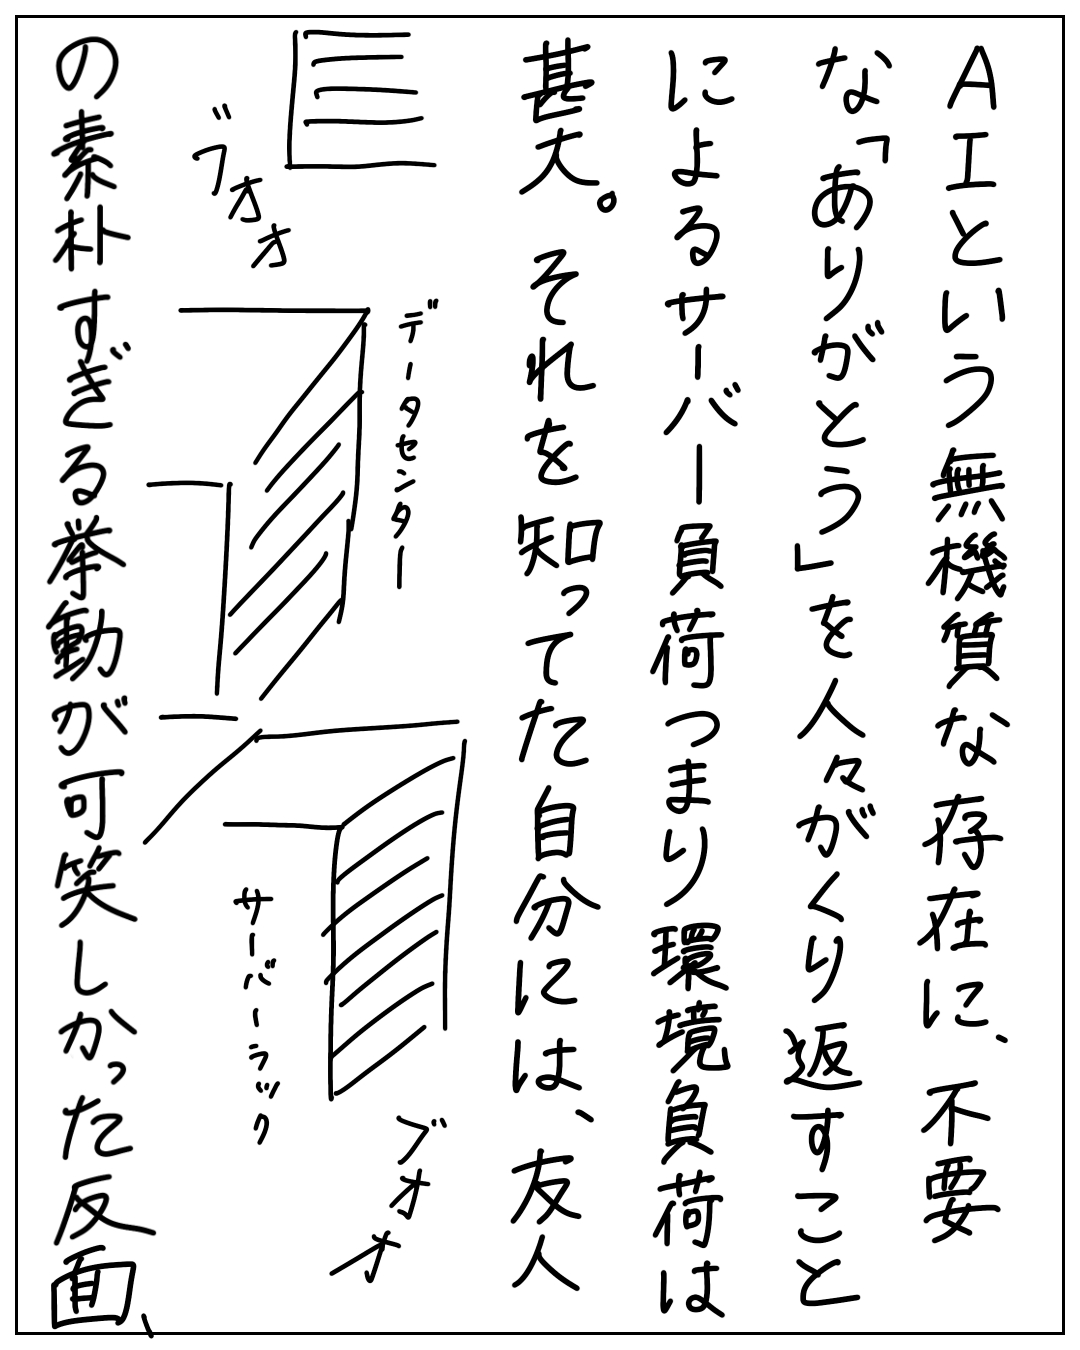 AIという無機質な存在に、不要
な「ありがとう」を人々がくり返すこと
によるサーバー負荷つまり環境負荷は
甚大。それを知ってた自分には、友人
データセンター
ブオオ
サーバーラック
ブオオ
の素朴すぎる挙動が可笑しかった反面、